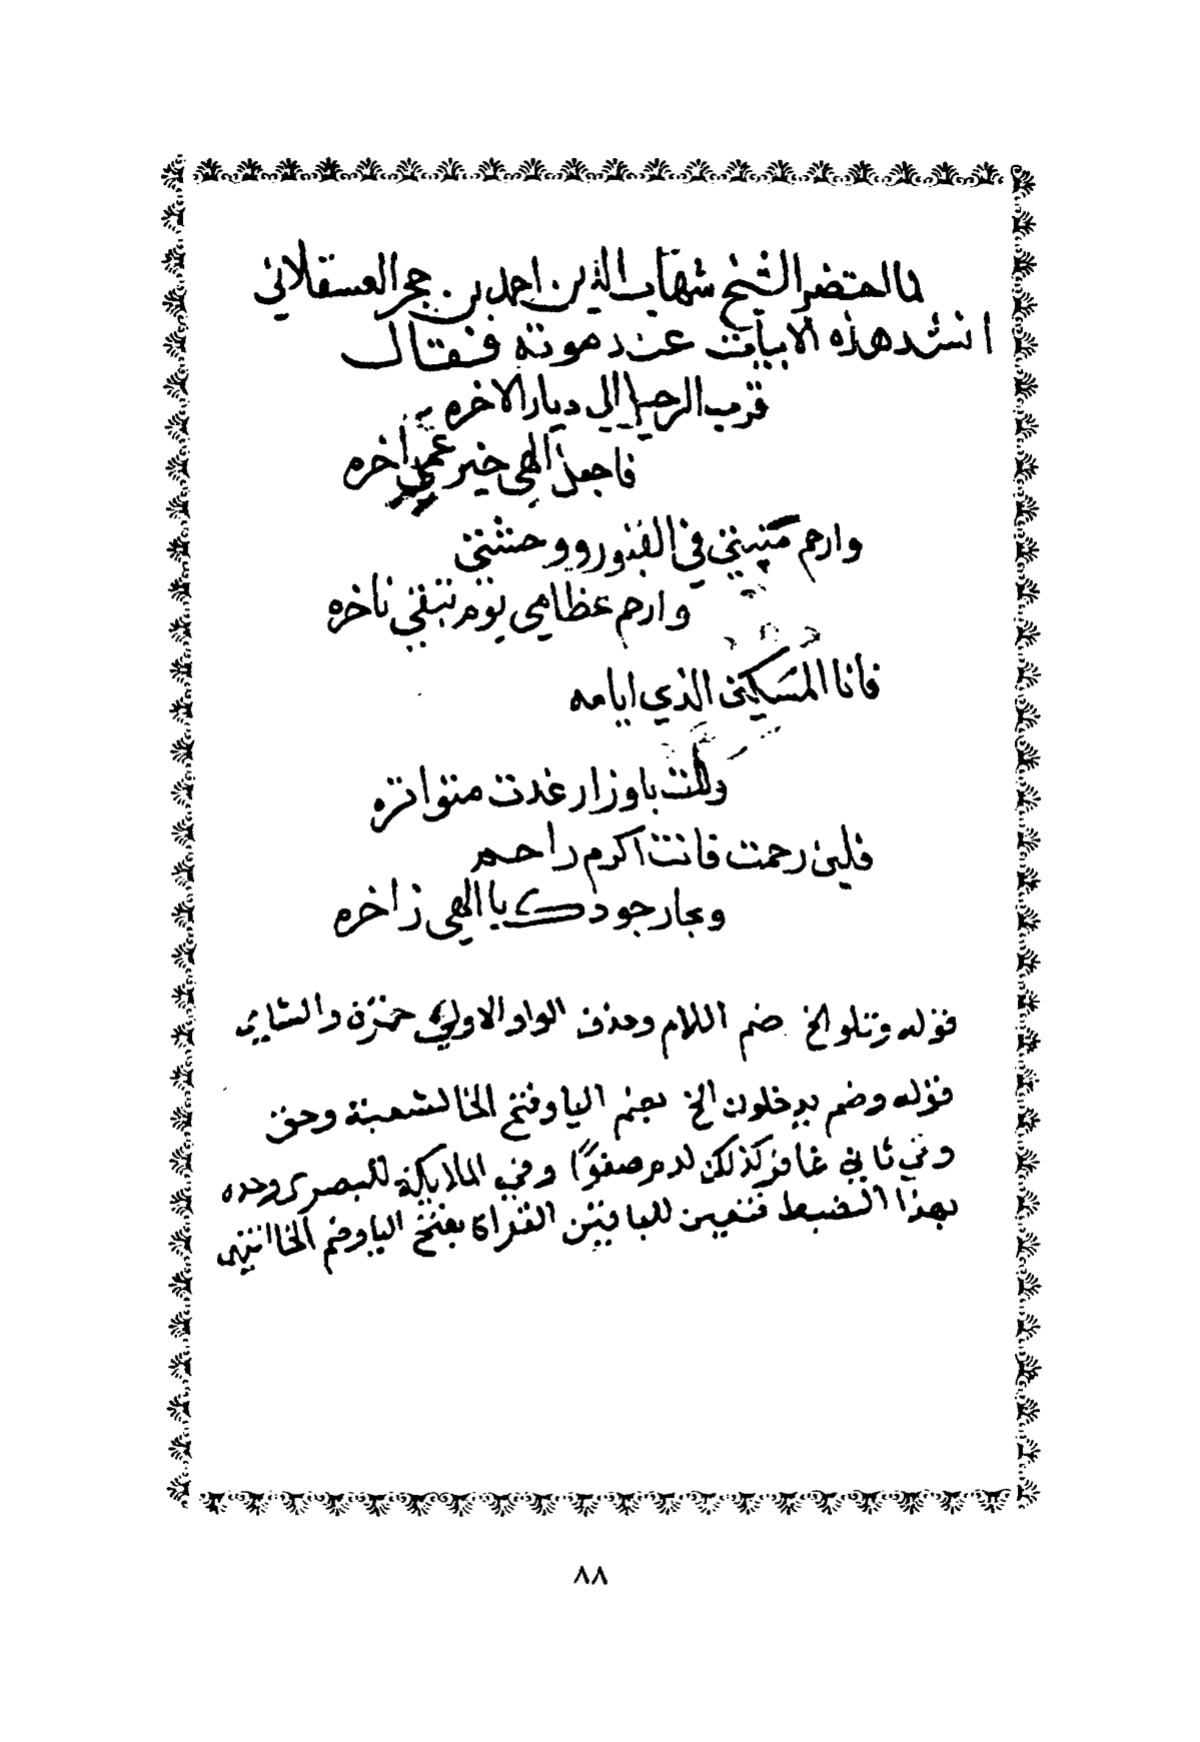 لما احتضر الشيخ شهاب الدين احمد بن حجر العسقلاني
انشد هذه الابيات عند موته فقال
قرب الرحيل الي ديار الاخره
فاجعل الهي خير عمري اخره
وارحم مبيتي في القبور ووحشتي
وارحم عظامي يوم تبقي ناخره
فانا المسيكين الذي ايامه
ولت باوزار غدت متواتره
فلين رحمت فانت اكرم راحم
وبحار جودك يا الهي زاخره
قوله وتلو الخ ضم اللام وحذف الواو الاولي حمزة والشامي
قوله وضم يدخلون الخ بضم اليا وفتح الخا لشعبة وحق
وفي ثاني غافر كذلك لدم صفوًا وفي الملايكة للبصري وحده
بهذا الضبط فتعين للباقين القراة بفتح اليا وضم الخا انتهي
٨٨